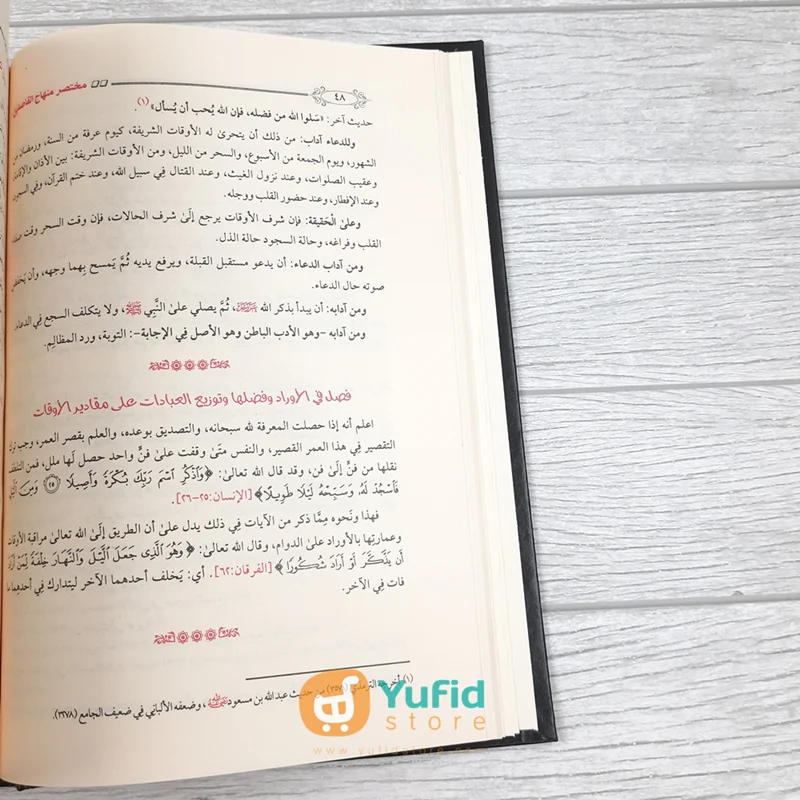 ٤٨
مختصر منهاج القاصدين
حديث آخر: «سَلوا الله من فضله، فإن الله يُحب أن يُسأل»(١).
وللدعاء آداب: من ذلك أن يتحرىٰ له الأوقات الشريفة، كيوم عرفة من السنة، ورمضان من
الشهور، ويوم الجمعة من الأسبوع، والسحر من الليل، ومن الأوقات الشريفة: بين الأذان والإقامة
وعقيب الصلوات، وعند نزول الغيث، وعند القتال فِي سبيل الله، وعند ختم القرآن، وفِي السجود
وعند الإفطار، وعند حضور القلب ووجله.
وعلىٰ الْحَقيقة: فإن شرف الأوقات يرجع إلَىٰ شرف الحالات، فإن وقت السحر وقت صفاء
القلب وفراغه، وحالة السجود حالة الذل.
ومن آداب الدعاء: أن يدعو مستقبل القبلة، ويرفع يديه ثُمَّ يَمسح بِهما وجهه، وأن يَخفض
صوته حال الدعاء.
ومن آدابه: أن يبدأ بذكر الله، ثُمَّ يصلي علىٰ النَّبِي ﷺ، ولا يتكلف السجع فِي الدعاء.
ومن آدابه -وهو الأدب الباطن وهو الأصل فِي الإجابة-: التوبة، ورد المظالِم.
فصل في الأوراد وفضلها وتوزيع العبادات على مقادير الأوقات
اعلم أنه إذا حصلت المعرفة لله سبحانه، والتصديق بوعده، والعلم بقصر العمر، وجب ترك
التقصير فِي هذا العمر القصير، والنفس متَىٰ وقفت علىٰ فنٍّ واحد حصل لَها ملل، فمن التلطف
نقلها من فنٍّ إلَىٰ فن، وقد قال الله تعالَىٰ: ﴿وَٱذْكُرِ ٱسْمَ رَبِّكَ بُكْرَةً وَأَصِيلًا ۝٢٥ وَمِنَ ٱلَّيْلِ
فَٱسْجُدْ لَهُۥ وَسَبِّحْهُ لَيْلًا طَوِيلًا﴾ [الإنسان:٢٥-٢٦].
فهذا ونَحوه مِمَّا ذكر من الآيات فِي ذلك يدل علىٰ أن الطريق إلَىٰ الله تعالَىٰ مراقبة الأوقات
وعمارتِها بالأوراد علىٰ الدوام، وقال الله تعالَىٰ: ﴿وَهُوَ ٱلَّذِى جَعَلَ ٱلَّيْلَ وَٱلنَّهَارَ خِلْفَةً لِّمَنْ أَرَادَ
أَن يَذَّكَّرَ أَوْ أَرَادَ شُكُورًا﴾ [الفرقان:٦٢]. أي: يَخلف أحدهما الآخر ليتدارك فِي أحدهما ما
فات فِي الآخر.
(١) أخرجه الترمذي (٣٥٧١) من حديث عبدالله بن مسعود، وضعفه الألباني في ضعيف الجامع (٣٢٧٨).
Yufid
store
www.yufidstore.com